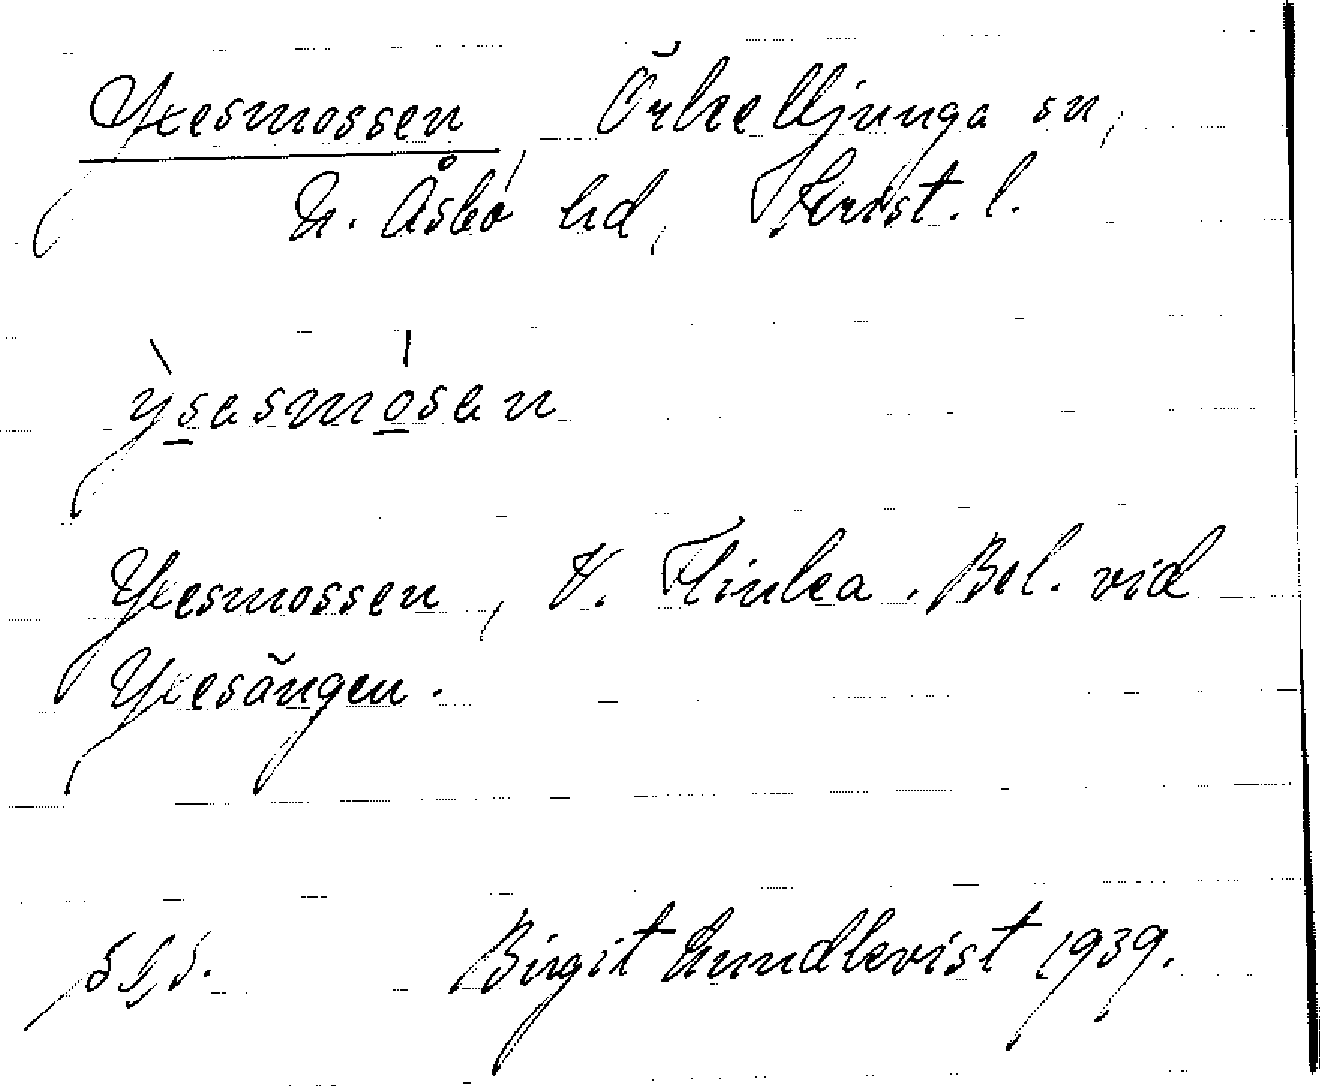 Yxesmossen, Örkelljunga sn,
N. Åsbo hd, Krist. l.
ỳsəsmósən
Yxesmossen, V. Flinka. Bel. vid
Yxesängen.
Birgit Lundkvist 1939.